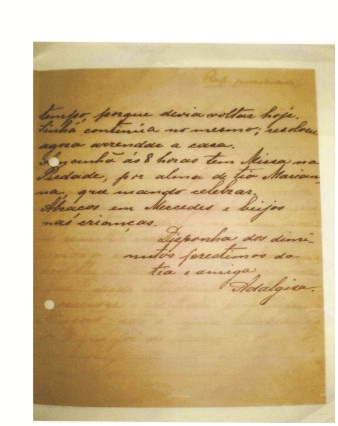 tempo, porque devia voltar hoje.
Tinhá continúa no mesmo; resolveu
agora arrendar a casa.
Amanhã ás 8 horas tem Missa na
Piedade, por alma de tio Marian-
na, que mando celebrar.
Abraços em Mercedes e beijos
nas crianças.
Disponha dos dimi-
nutos prestimos da
tia e amiga
Adalgisa.